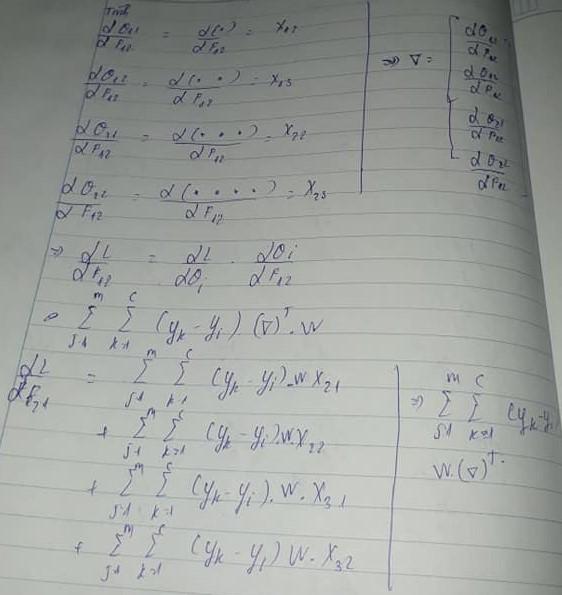 dO₁₁/dF₁₂ = d(·)/dF₁₂ = X₁₂
dO₁₂/dF₁₂ = d(· ·)/dF₁₂ = X₁₃
dO₂₁/dF₁₂ = d(· · ·)/dF₁₂ = X₂₂
dO₂₂/dF₁₂ = d(· · · ·)/dF₁₂ = X₂₃
⇒ ∇ = [dO₁₁/dF₁₂
dO₁₂/dF₁₂
dO₂₁/dF₁₂
dO₂₂/dF₁₂]
⇒ dL/dF₁₂ = dL/dOᵢ · dOᵢ/dF₁₂
∑_{j=1}^{m} ∑_{k=1}^{c} (yₖ - yᵢ) (∇)ᵀ · W
dL/dF₂₁ = ∑_{j=1}^{m} ∑_{k=1}^{c} (yₖ - yᵢ) · W X₂₁
+ ∑_{j=1}^{m} ∑_{k=1}^{c} (yₖ - yᵢ) · W · X₂₂
+ ∑_{j=1}^{m} ∑_{k=1}^{c} (yₖ - yᵢ) · W · X₃₁
+ ∑_{j=1}^{m} ∑_{k=1}^{c} (yₖ - yᵢ) W · X₃₂
⇒ ∑_{j=1}^{m} ∑_{k=1}^{c} (yₖ - yᵢ
W · (∇)ᵀ ·